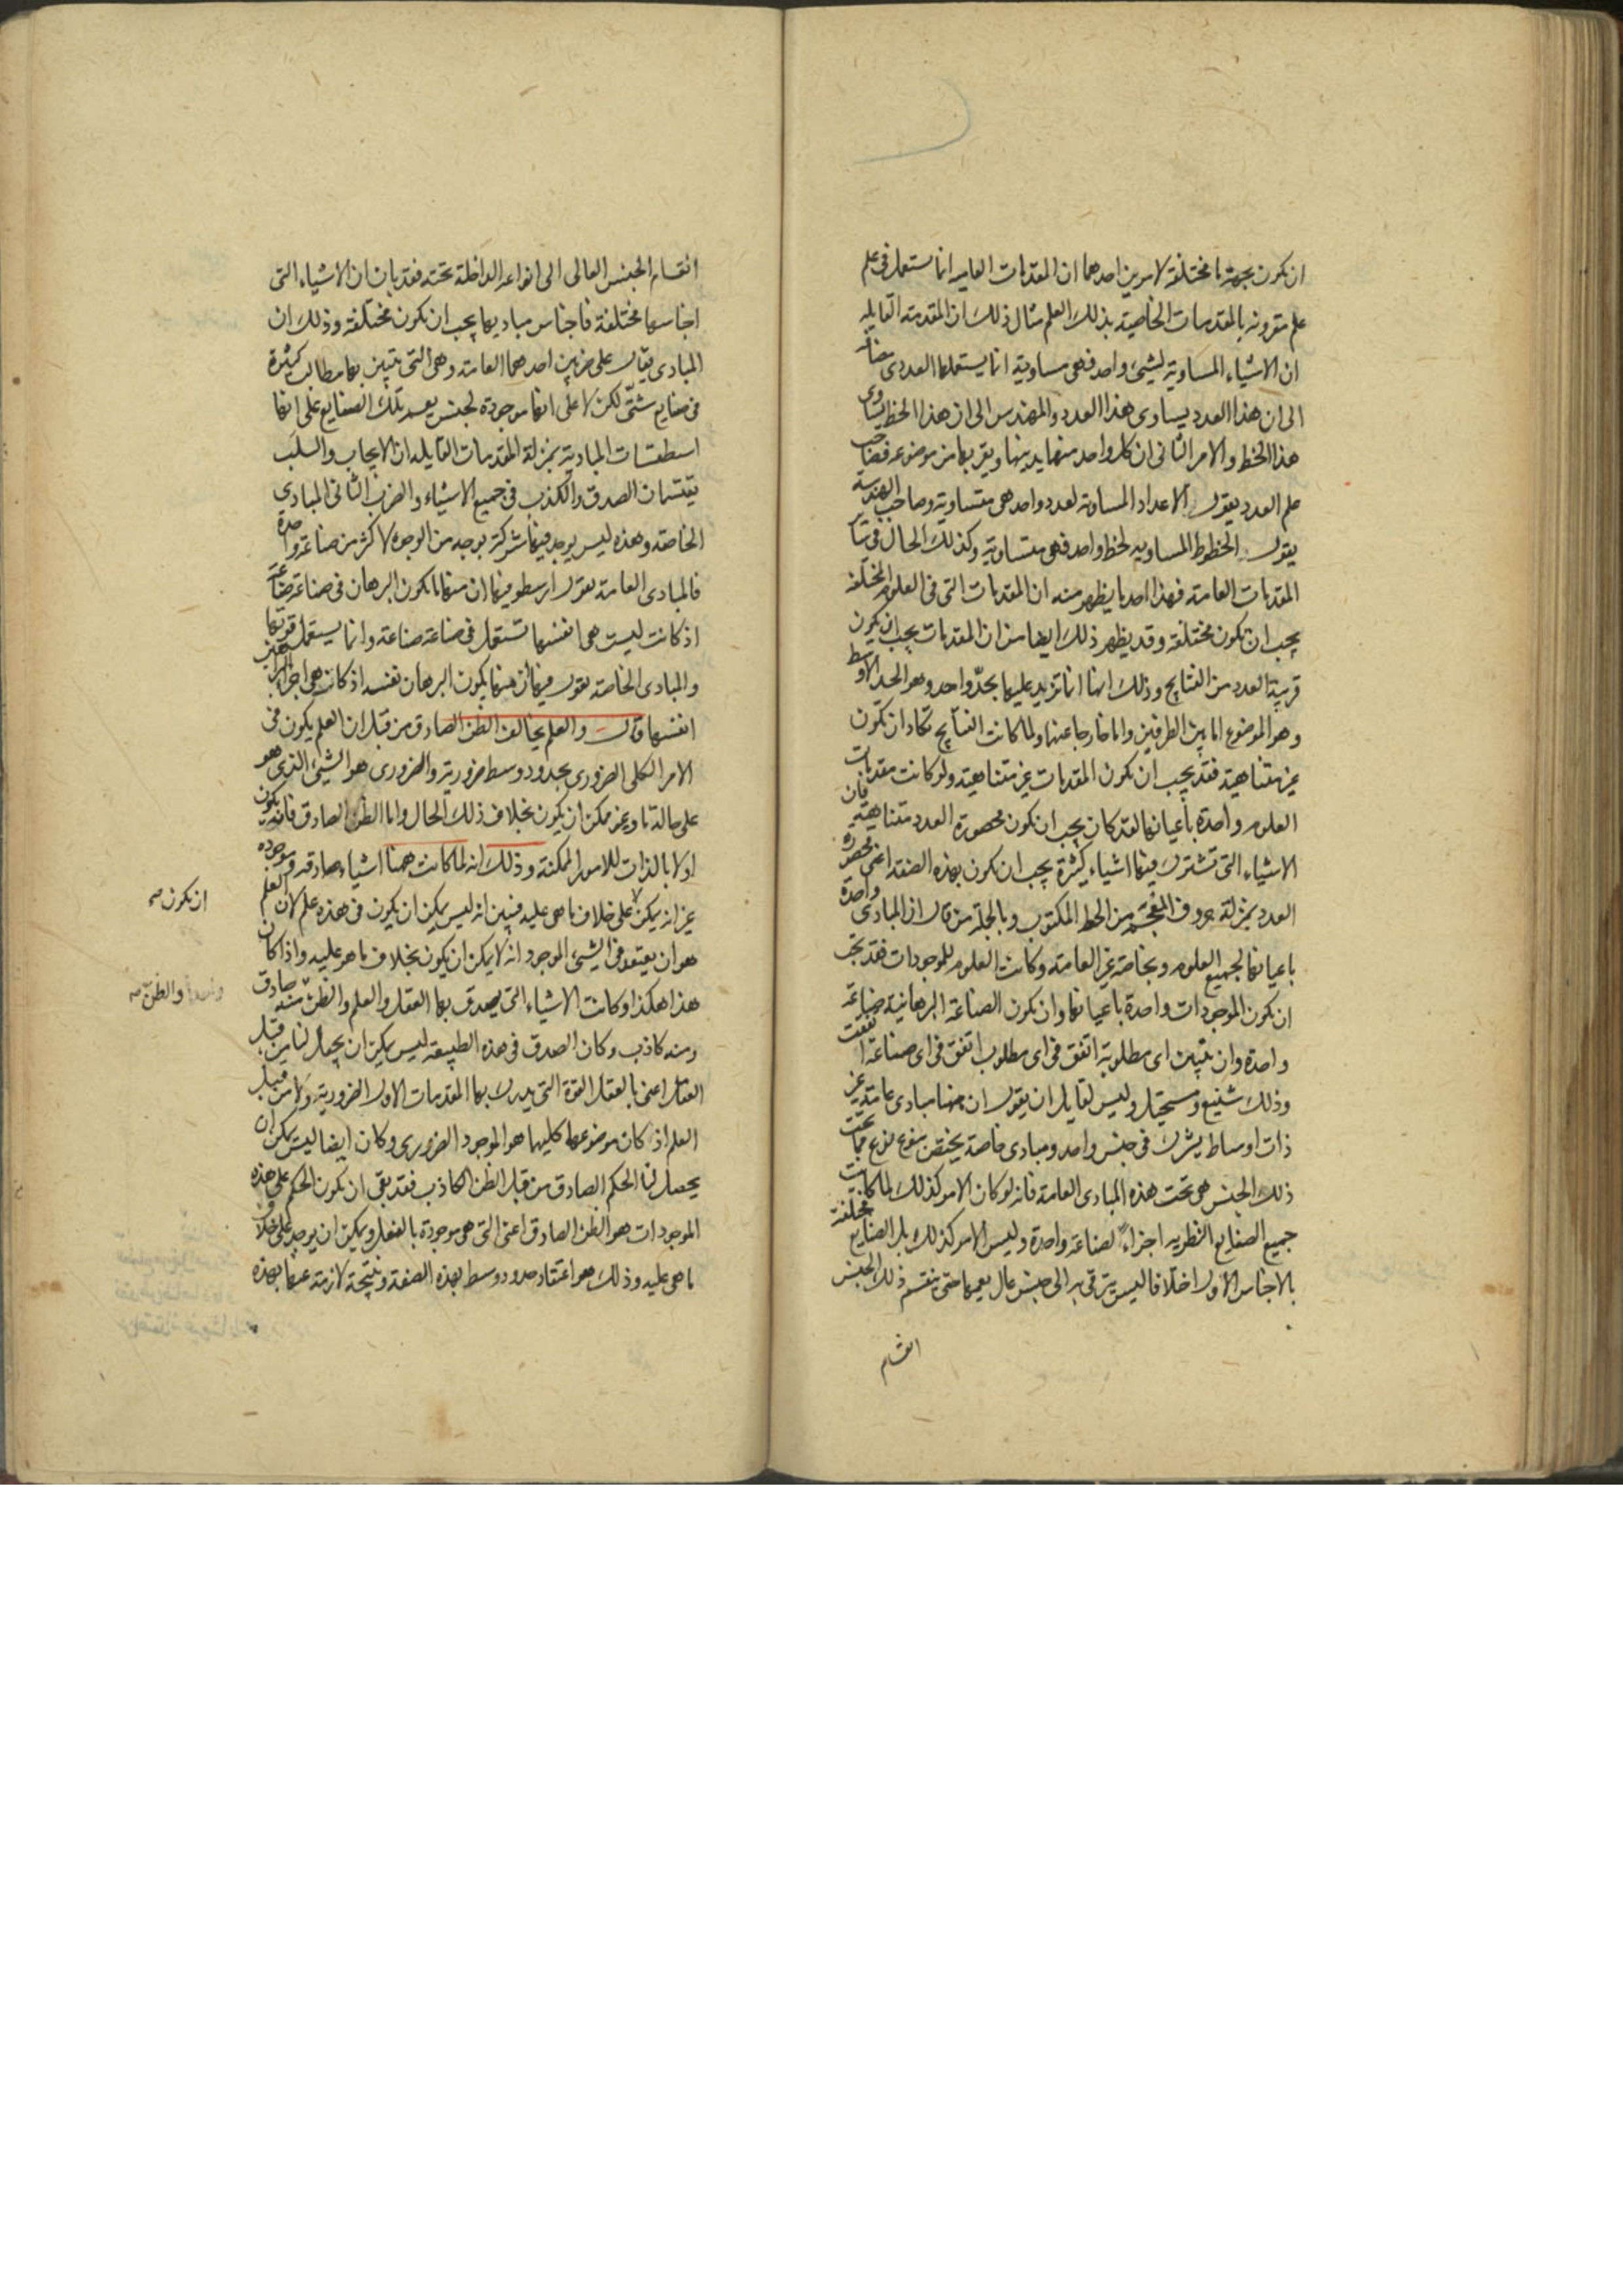 ان تكون بجهة ما مختلفة لامرين احدهما ان المقدمات العامه انما تستعمل فى علم
علم مقرونه بالمقدمات الخاصية بذلك العلم مثال ذلك ان المقدمه القايله
ان الاشياء المساوية لشيئ واحد فهى مساوية انما يستعملها العددى مضافه
الى ان هذا العدد يساوى هذا العدد والمهندس الى ان هذا الخط يساوى
هذا الخط والامر الثانى ان كل واحد منهما يدنيها ويقربها من موضوعه فصاحب
علم العدد يقول الاعداد المساوية لعدد واحد هى متساوية وصاحب الهندسة
يقول الخطوط المساويه لخط واحد فهى متساوية وكذلك الحال فى ساير
المقدمات العامة فهذا احد ما يظهر منه ان المقدمات التى فى العلوم المختلفه
يجب ان تكون مختلفة وقد يظهر ذلك ايضا من ان المقدمات يجب ان تكون
قريبة العدد من النتايج وذلك انها انما تزيد عليها بحدّ واحد وهو الحد الاوسط
وهو الموضوع اما بين الطرفين واما خارجا عنها ولما كانت النتايج تكاد ان تكون
غير متناهية فقد يجب ان تكون المقدمات غير متناهية ولو كانت مقدمات
العلوم واحدة باعيانها لقد كان يجب ان تكون محصورة العدد متناهية فان
الاشياء التى تشترك فيها اشياء كثيرة يجب ان تكون بهذه الصفة اعنى محصورة
العدد بمنزلة حروف المعجم من الخط المكتوب وبالجملة من قال ان المبادى واحدة
باعيانها لجميع العلوم وبخاصة غير العامة وكانت العلوم للموجودات فقد يجب
ان تكون الموجودات واحدة باعيانها وان تكون الصناعة البرهانية صناعة
واحدة وان يتبين اى مطلوبة اتفق فى اى مطلوب اتفق فى اى صناعة اتفقت
وذلك شنيع ومستحيل وليس لقايل ان يقول ان ههنا مبادى عامية غير
ذات اوساط يشترك فى جنس واحد ومبادى خاصة يختص بنوع نوع مما تحت
ذلك الجنس هى تحت هذه المبادى العامة فانه لو كان الامر كذلك لما كانت
جميع الصنايع النظريه اجزاءً لصناعة واحدة وليس الامر كذلك بل الصنايع مختلفة
بالاجناس الاول اختلافا ليس يترقى به الى جنس عال يعمها حتى ينقسم ذلك الجنس
انقسام
انقسام الجنس العالى الى انواعه الداخلة تحته فقد بان ان الاشياء التى
اجناسها مختلفة فاجناس مباديها يجب ان تكون مختلفة وذلك ان
المبادى يقال على ضربين احدهما العامة وهى التى يتبين بها مطالب كثيرة
فى صنايع شتّى لكن لا على انها موجودة لجنس يعم تلك الصنايع على انها
اسطقسات المبادية بمنزلة المقدمات القايله ان الايجاب والسلب
يقتسمان الصدق والكذب فى جميع الاشياء والضرب الثانى المبادى
الخاصة وهذه ليس يوجد فيها شركة بوجه من الوجوه لاكثر من صناعة واحدة
فالمبادى العامة يقول ارسطو فيها ان منها ما يكون البرهان فى صناعة صناعة
اذ كانت ليست هى انفسها تستعمل فى صناعة صناعة وانما يستعمل قوتها
والمبادى الخاصة يقول فيها ان منها يكون البرهان نفسه اذ كانت هى اجزاء البراهين
انفسها قال والعلم يخالف الظن الصادق من قبل ان العلم يكون فى
الامر الكلى الضرورى بحدود وسط ضرورية والضرورى هو الشيئ الذى هو
على حالة ما وغير ممكن ان يكون بخلاف ذلك الحال واما الظن الصادق فانه يكون
اولا بالذات للامور الممكنة وذلك انه لما كانت ههنا اشياء صادقه وموجوده
غير انه يمكن على خلاف ما هى عليه فبين انه ليس يمكن ان يكون فى هذه علم لان العلم
هو ان يعتقد فى الشيئ الموجود انه لا يمكن ان يكون بخلاف ما هو عليه واذا كان
هذا هكذا وكانت الاشياء التى يصدق بها العقل والعلم والظنّ منه صادق
ومنه كاذب وكان الصدق فى هذه الطبيعة ليس يمكن ان يحصل لنا من قبل
العقل اعنى بالعقل القوة التى يدرك بها المقدمات الاول الضرورية ولا من قبل
العلم اذ كان موضوعهما كليهما هو الموجود الضرورى وكان ايضا ليس يمكن ان
يحصل لنا الحكم الصادق من قبل الظن الكاذب فقد بقى ان يكون الحكم على هذه
الموجودات هو الظن الصادق اعنى التى هى موجودة بالفعل ويمكن ان يوجد على خلاف
ما هى عليه وذلك هو اعتقاد حدود وسط بهذه الصفة ونتيجة لازمة عنها بهذه
ان تكون صح
والظنّ صح